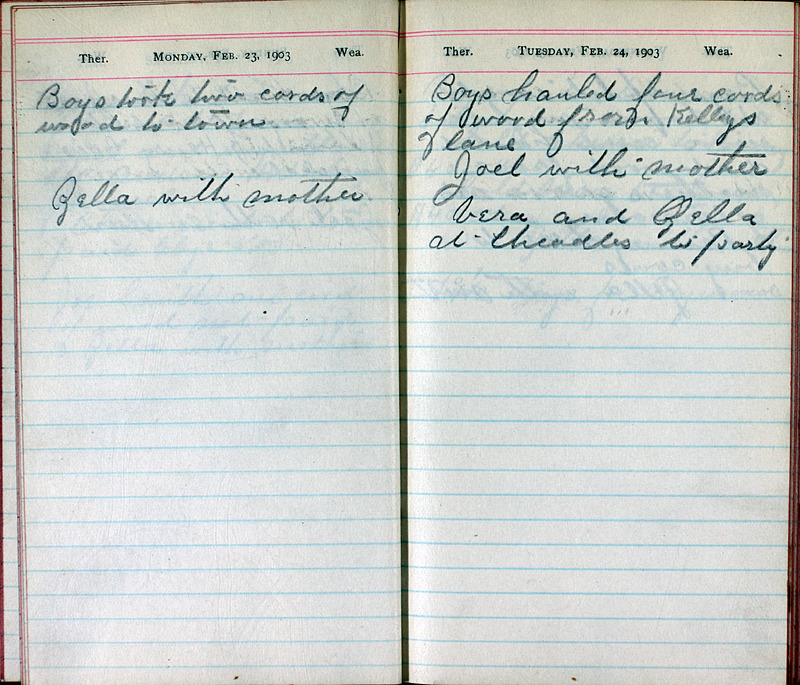 Ther. MONDAY, FEB. 23, 1903 Wea.
Boys took two cords of
wood to town
Zella with mother
Ther. TUESDAY, FEB. 24, 1903 Wea.
Boys hauled four cords
of wood from Kelleys
lane
Joel with mother
Vera and Zella
at to party